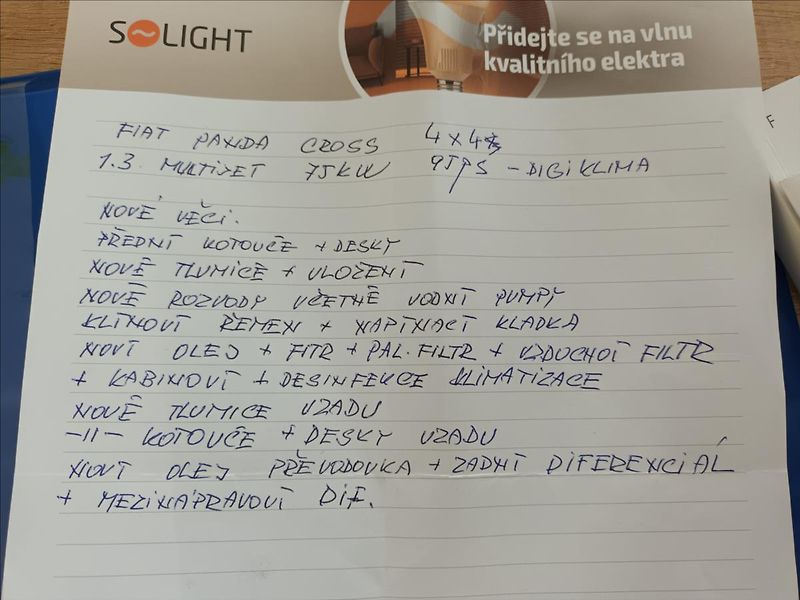 SOLIGHT
Přidejte se na vlnu
kvalitního elektra
F
FIAT PANDA CROSS 4x4
1.3 MULTIJET 75KW 95PS - DIGIKLIMA
NOVÉ VĚCI.
PŘEDNÍ KOTOUČE + DESKY
NOVÉ TLUMIČE + ULOŽENÍ
NOVÉ ROZVODY VČETNĚ VODNÍ PUMPY
KLÍNOVÍ ŘEMEN + NAPÍNACÍ KLADKA
NOVÍ OLEJ + FITR + PAL. FILTR + VZDUCHOÍ FILTR
+ KABINOVÍ + DESINFEKCE KLIMATIZACE
NOVÉ TLUMICE VZADU
-11- KOTOUČE + DESKY VZADU
NOVÍ OLEJ PŘEVODOVKA + ZADNÍ DIFERENCIÁL
+ MEZINÁPRAVOVÍ DIF.